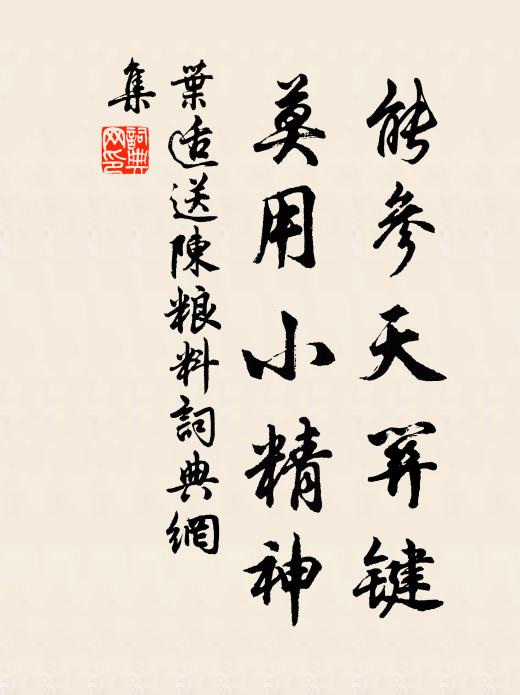 能參天关键
莫用小精神
葉适送陳粮料詞典網
集
詞典网印